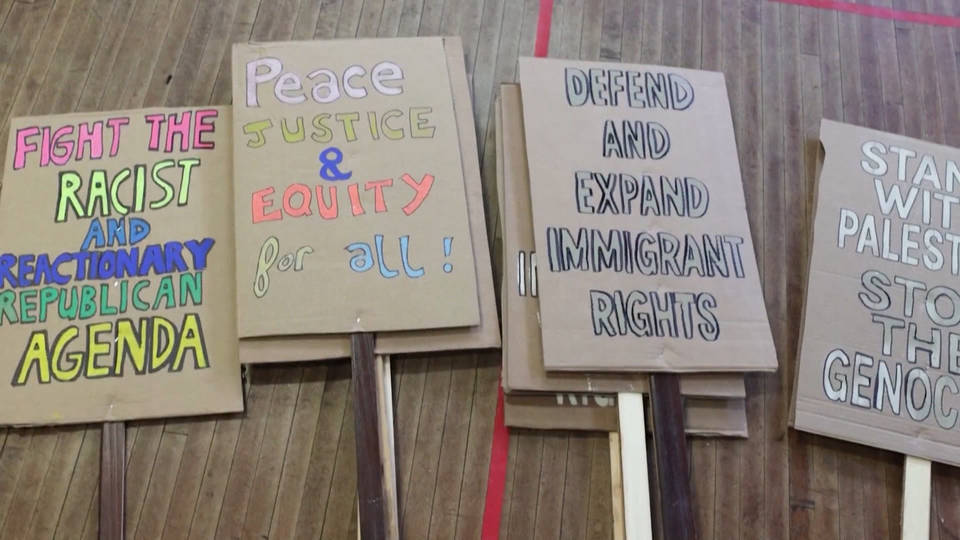 FIGHT THE
RACIST
AND
REACTIONARY
REPUBLICAN
AGENDA
Peace
JUSTICE
&
EQUITY
for all!
DEFEND
AND
EXPAND
IMMIGRANT
RIGHTS
STAN
WIT
PALEST
STO
THE
GENOC